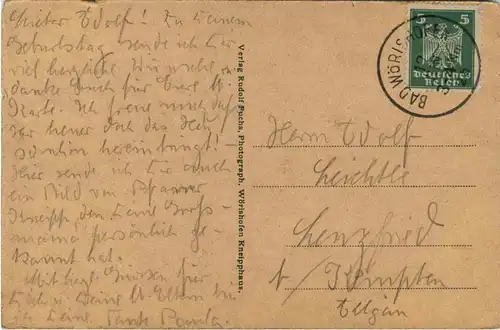 Lieber Adolf! Zu Deinem
Geburtstag sende ich Dir
viel herzliche Wünsche u.
danke auch für Eure lb.
Karte. Ich freue mich daß
Ihr heuer doch das Heu
schön hereinbringt!
Hier sende ich Dir auch
ein Bild von Pfarrer
Kneipp, den Deine Groß-
mama persönlich ge-
kannt hat.
Mit herzl. Grüßen für
Dich u. Deine lb. Eltern bin
ich Deine Tante Paula.
Verlag Rudolf Fuchs, Photograph, Wörishofen Kneipphaus.
5 5
Deutsches
Reich
BAD WÖRISHOFEN
Herrn Adolf
Leichtle
Lenzfried
b/ Kempten
Allgäu